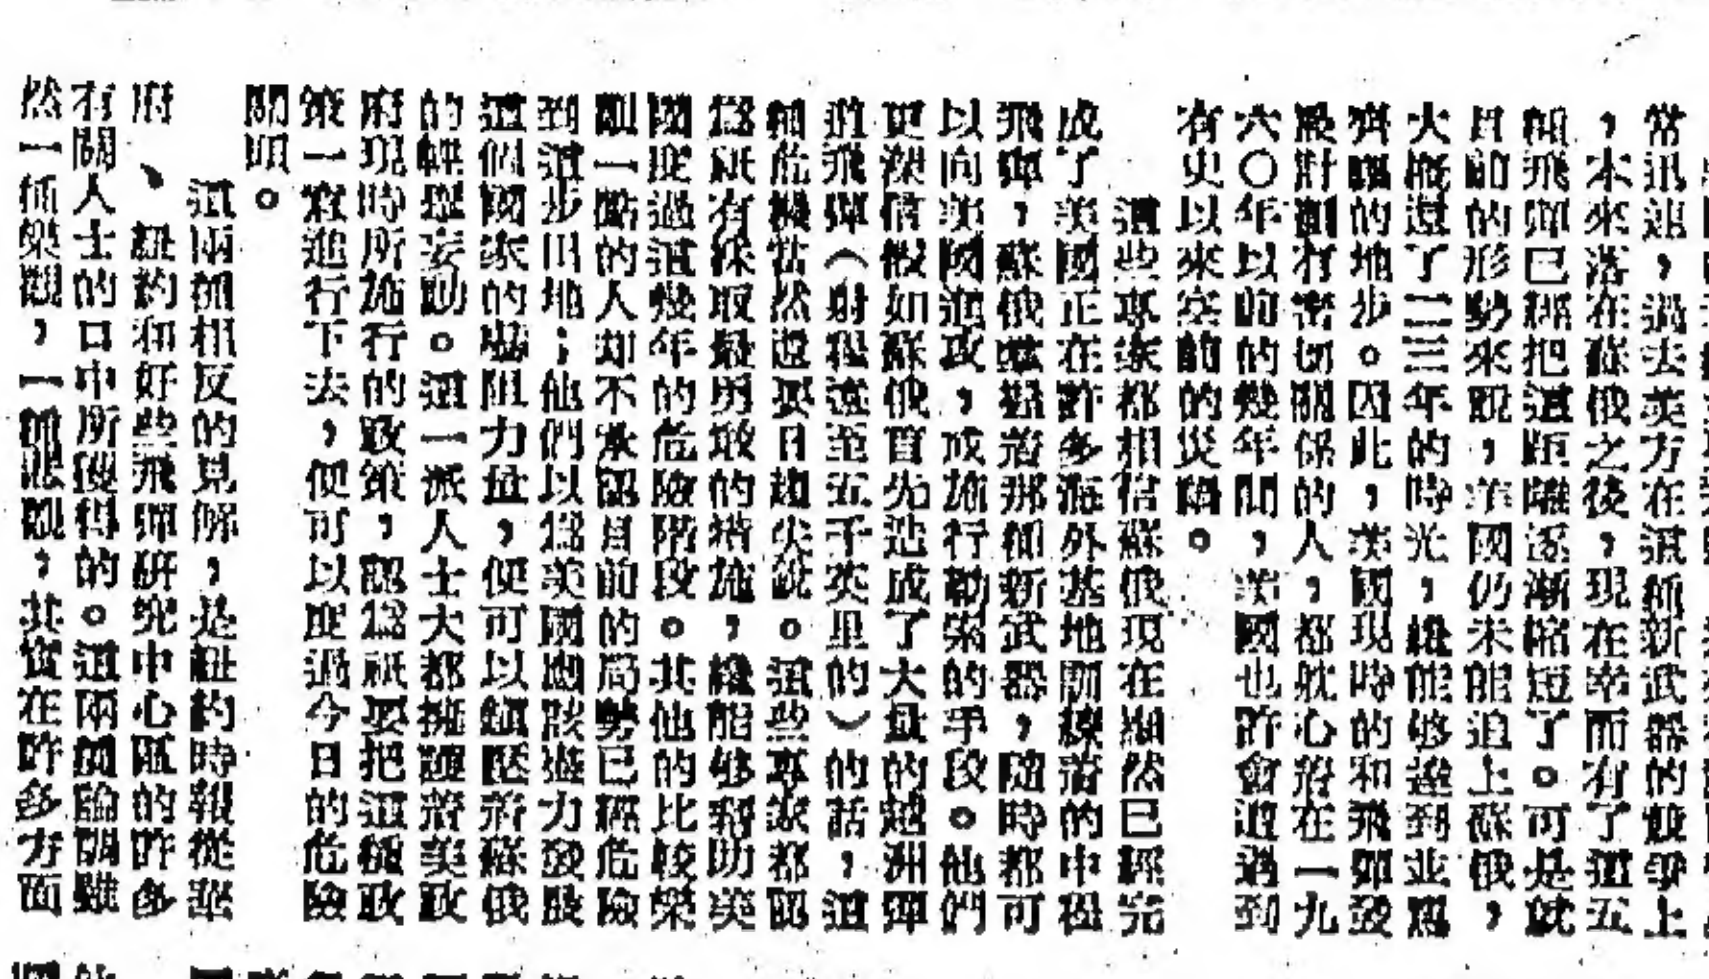 常迅速，過去美方在這種新武器的競爭上
，本來落在蘇俄之後，現在幸而有了這五
顆飛彈已經把這距離逐漸縮短了。可是就
目前的形勢來說，美國仍未能追上蘇俄，
大概還了二三年的時光，纔能够達到並駕
齊驅的地步。因此，美國現時的和飛彈發
展計劃有密切關係的人，都躭心着在一九
六〇年以前的幾年間，美國也許會遭遇到
有史以來空前的災禍。
這些專家都相信蘇俄現在顯然已經完
成了美國正在許多海外基地訓練着的中程
飛彈，蘇俄憑藉着那種新武器，隨時都可
以向美國進攻，或施行勒索的手段。他們
更深信假如蘇俄首先造成了大量的越洲彈
道飛彈（射程遠至五千英里的）的話，這
種危機當然還要日趨尖銳。這些專家都認
爲祇有採取最勇敢的措施，纔能够幫助美
國度過這幾年的危險階段。其他的比較樂
觀一點的人却不承認目前的局勢已經危險
到這步田地；他們以爲美國應該盡力發展
這個國家的嚇阻力量，便可以鎮壓着蘇俄
的輕舉妄動。這一派人士大都擁護着美政
府現時所施行的政策，認爲祇要把這種政
策一實進行下去，便可以度過今日的危險
關頭。
這兩種相反的見解，是紐約時報從華
府、紐約和好些飛彈研究中心區的許多
有關人士的口中所獲得的。這兩種論調雖
然一種樂觀，一種悲觀，其實在許多方面